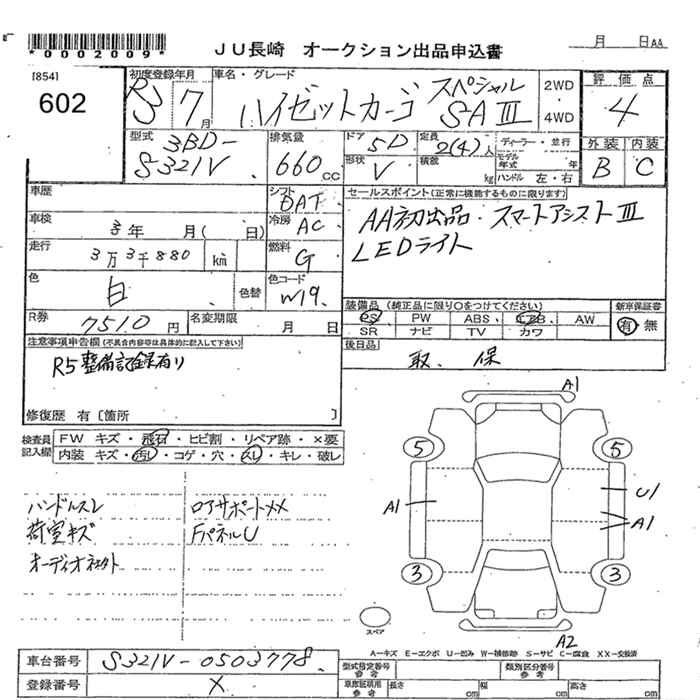 *0002009*
JU長崎 オークション出品申込書
月 日AA
[854]
602
初度登録年月
R3 7月
車名・グレード
ハイゼットカーゴ スペシャル SAⅢ
2WD
4WD
評価点
4
型式
3BD-
S321V
排気量
660cc
ドア
5D
定員
2(4)人
ディーラー・並行
モデル年式 年
形状
V
積載
kg
ハンドル 左・右
外装 内装
B C
車歴
シフト
DAT
車検
3年 月( 日)
冷房
AC
走行
3万3千880 km
燃料
G
色
白
色替
色コード
W19
R券
7510円
名変期限
月 日
セールスポイント(正常に機能するものに限ります)
AA初出品・スマートアシストⅢ
LEDライト
装備品(純正品に限り○をつけてください)
PS PW ABS エアB AW
SR ナビ TV カワ
新車保証書
有 無
後日品
取、保
注意事項申告欄(不具合内容等は具体的に記入して下さい)
R5整備記録有り
修復歴 有〔箇所 〕
検査員記入欄
FW キズ・飛石・ヒビ割・リペア跡・×要
内装 キズ・汚れ・コゲ・穴・スレ・キレ・破レ
ハンドルスレ
荷室キズ
ロアサポートXX
FパネルU
A1
5
5
A1
U1
A1
3
3
スペア
A2
A−キズ E−エクボ U−凹み W−補修跡 S−サビ C−腐食 XX−交換済
車台番号
S321V-0503778
登録番号
X
型式指定番号
参考
類別区分番号
参考
車庫証明用
参考
長さ cm
幅 cm
高さ cm